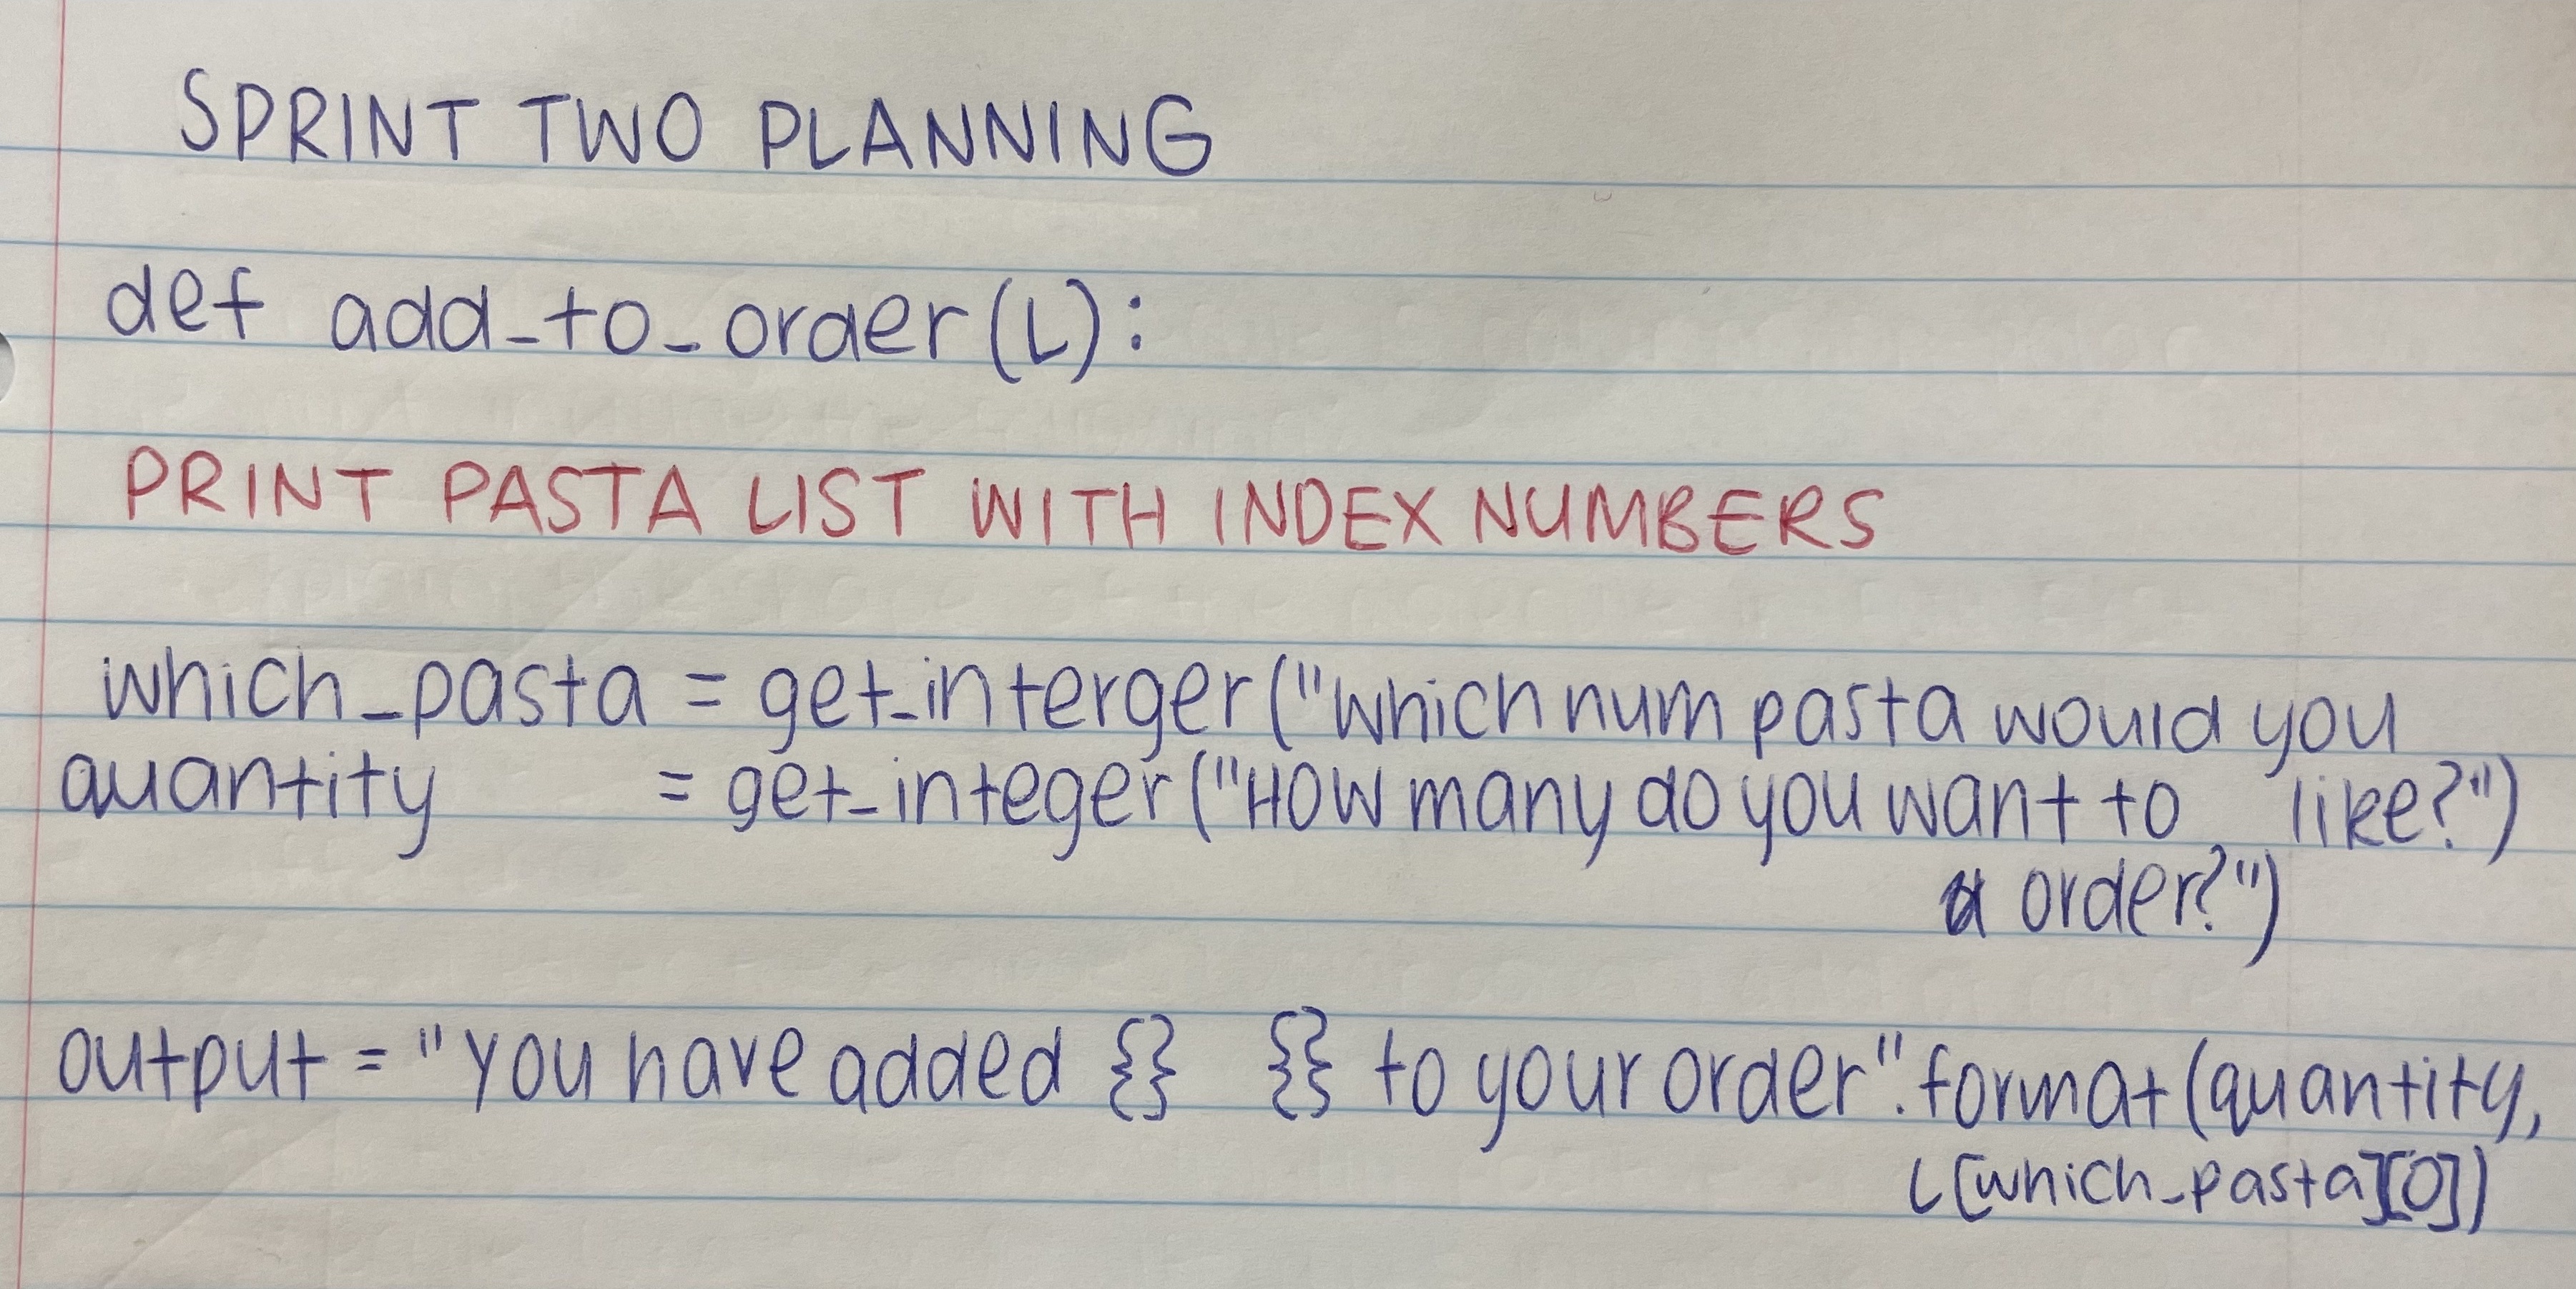 SPRINT TWO PLANNING
def add_to_order(L):
PRINT PASTA LIST WITH INDEX NUMBERS
which_pasta = get_interger("which num pasta would you
like?")
quantity = get_integer("How many do you want to
order?")
output = "You have added {} {} to your order".format(quantity,
L[which_pasta][0])